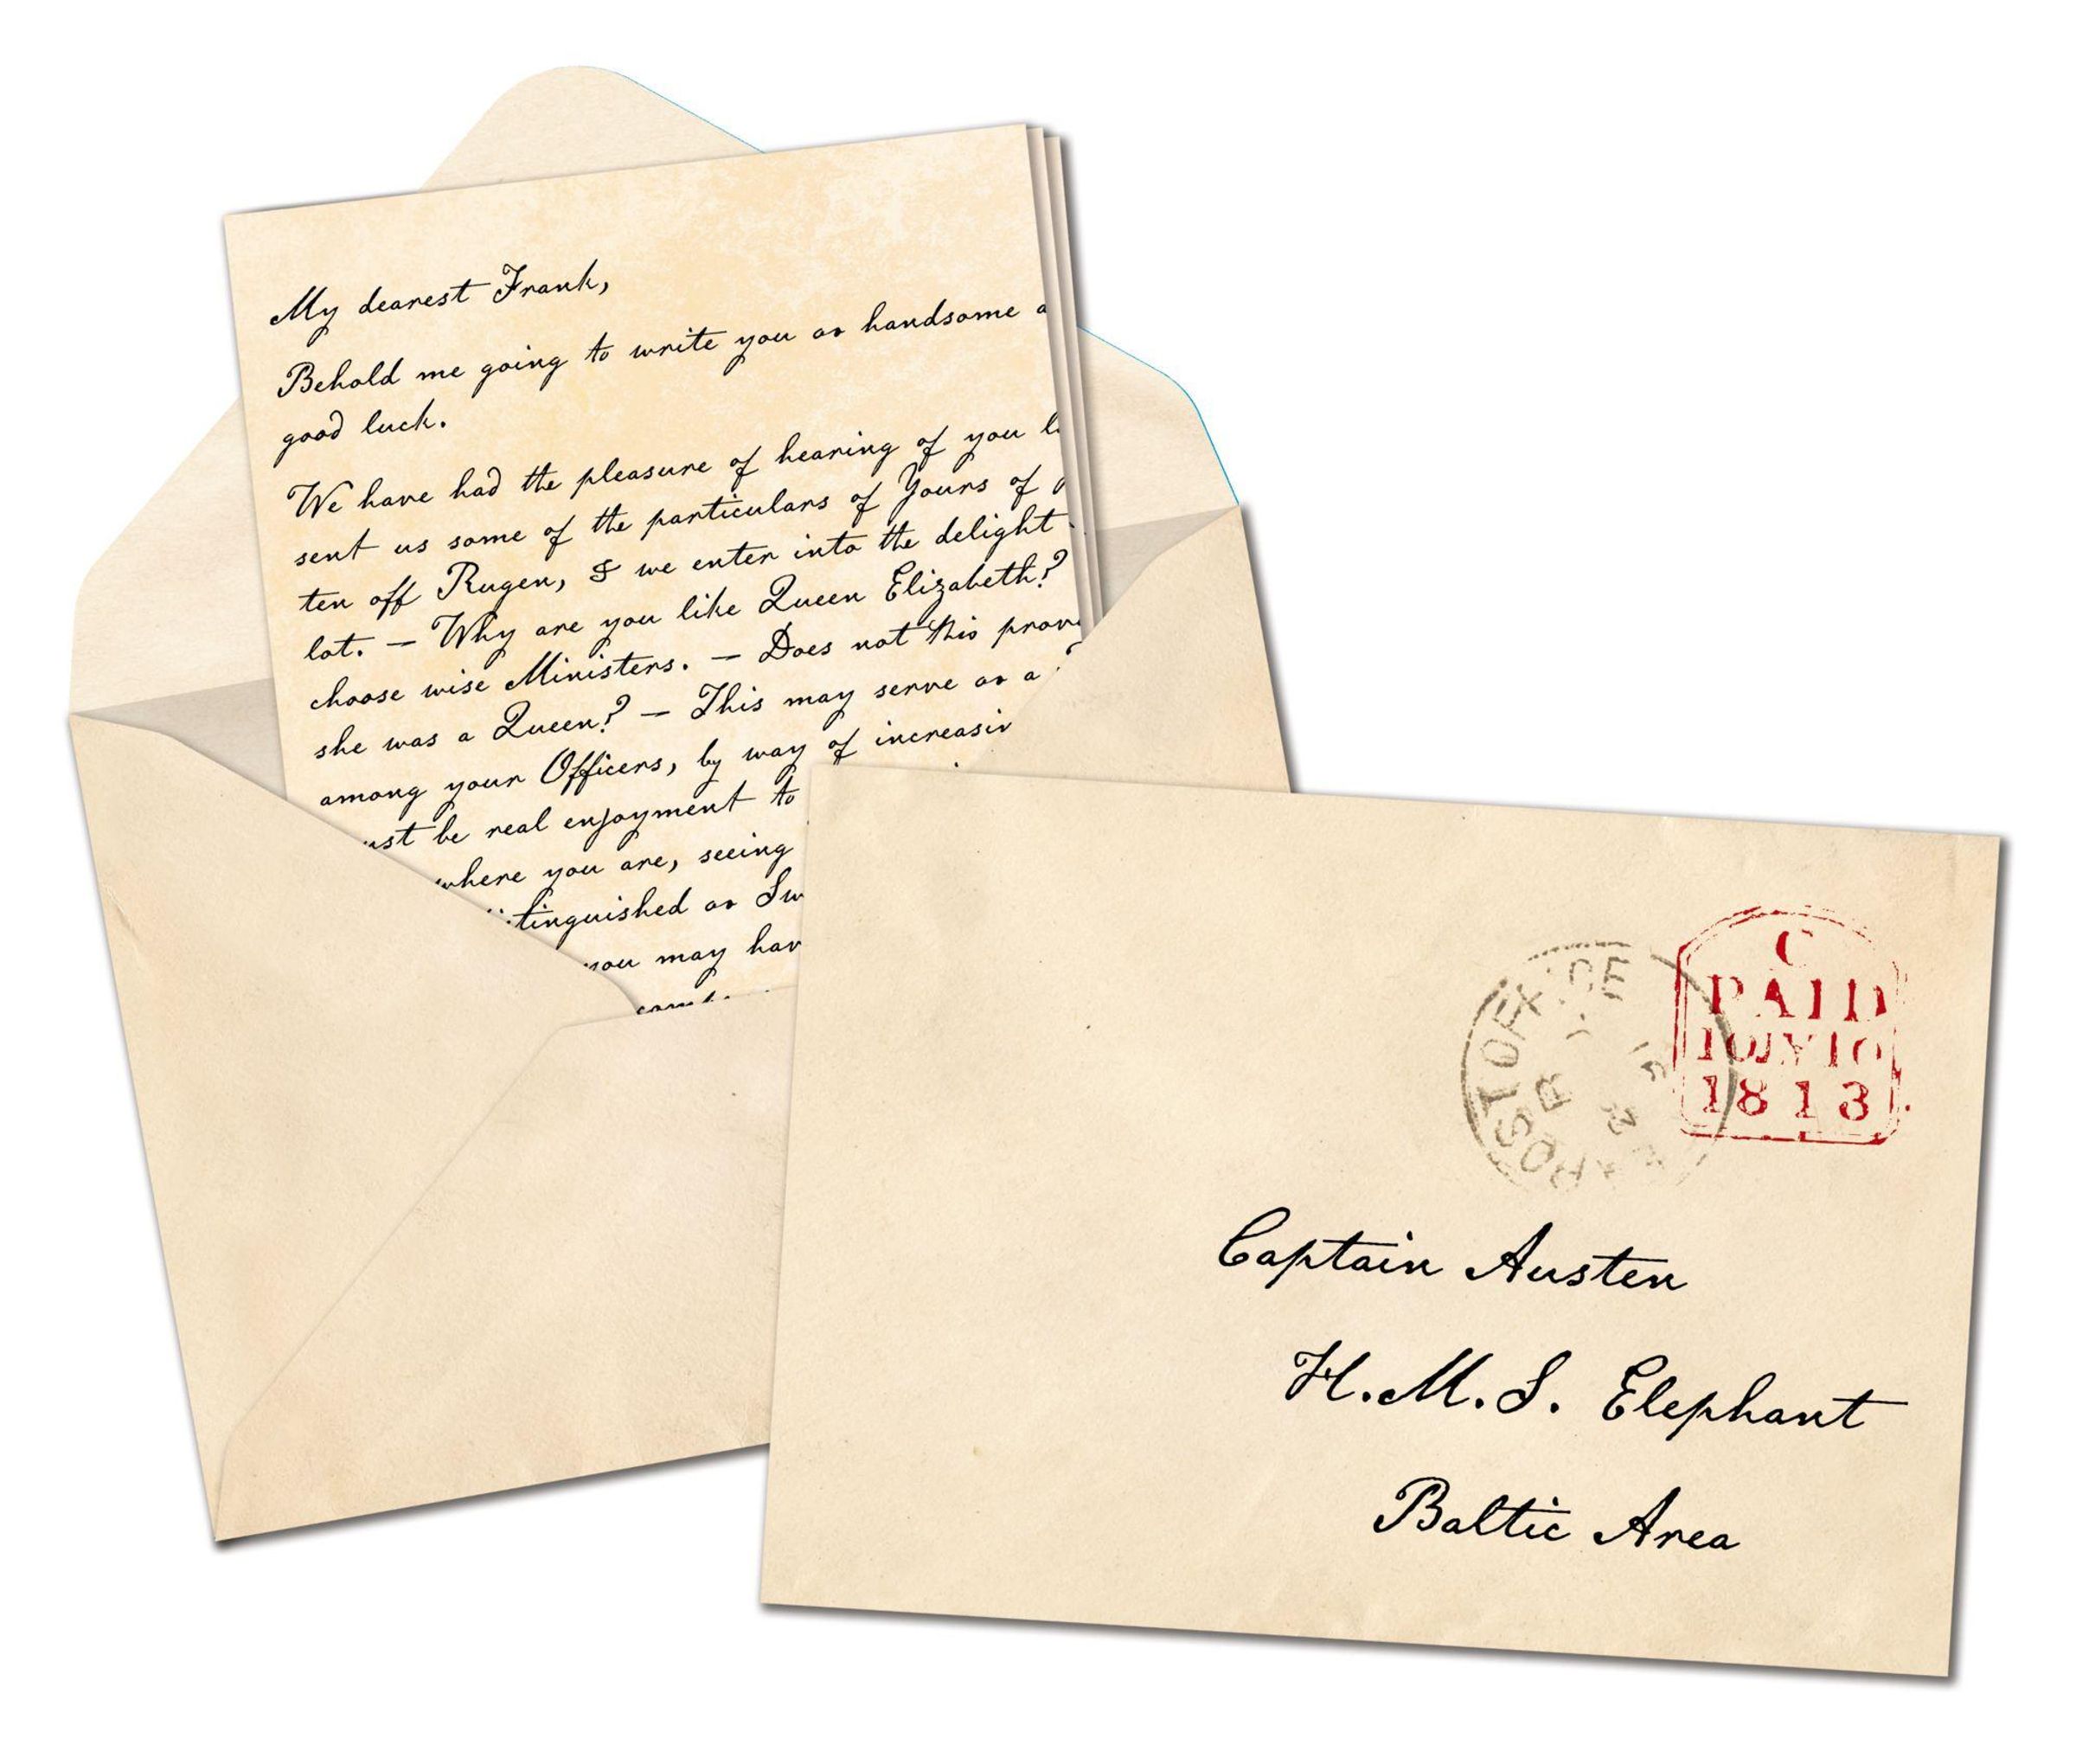 My dearest Frank,
Behold me going to write you as handsome a
good luck.
We have had the pleasure of hearing of you
sent us some of the particulars of Yours of
ten off Rugen, & we enter into the delight
lot. — Why are you like Queen Elizabeth?
choose wise Ministers. — Does not this
she was a Queen? — This may serve as a
among your Officers, by way of
be real enjoyment to
where you are, seeing
as
you may
C
PAID
10JY10
1813
POST OFFICE
Captain Austen
H.M.S. Elephant
Baltic Area